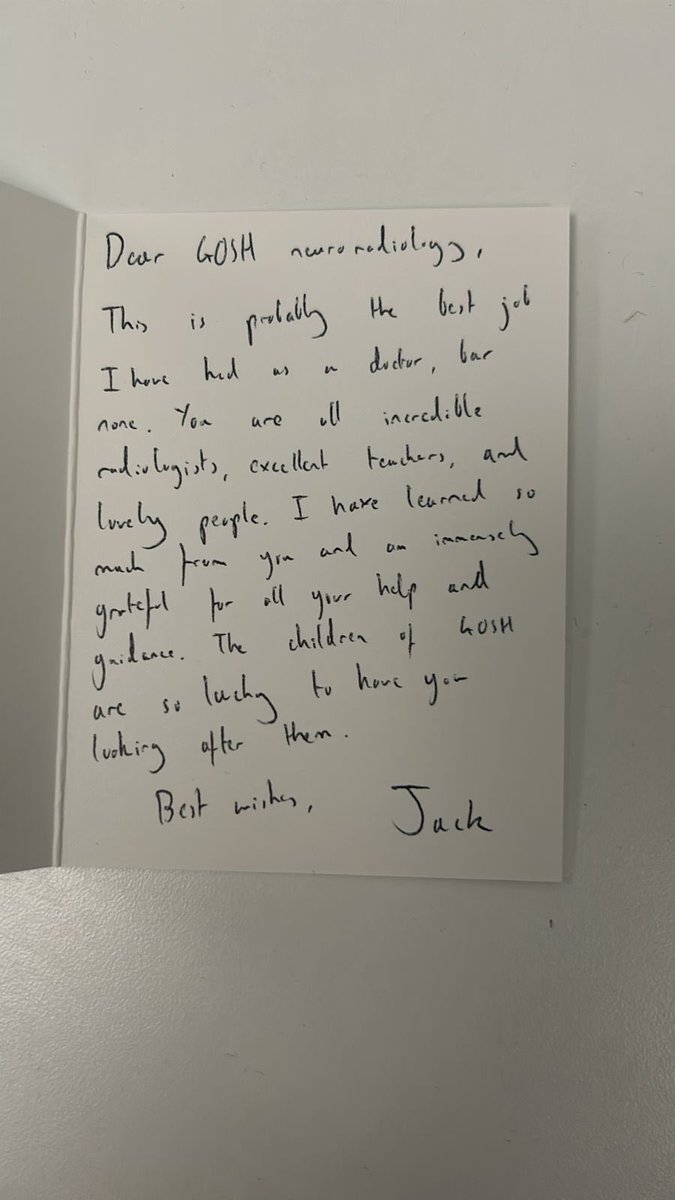 Dear GOSH neuroradiology,
This is probably the best job
I have had as a doctor, bar
none. You are all incredible
radiologists, excellent teachers, and
lovely people. I have learned so
much from you and am immensely
grateful for all your help and
guidance. The children of GOSH
are so lucky to have you
looking after them.
Best wishes, Jack